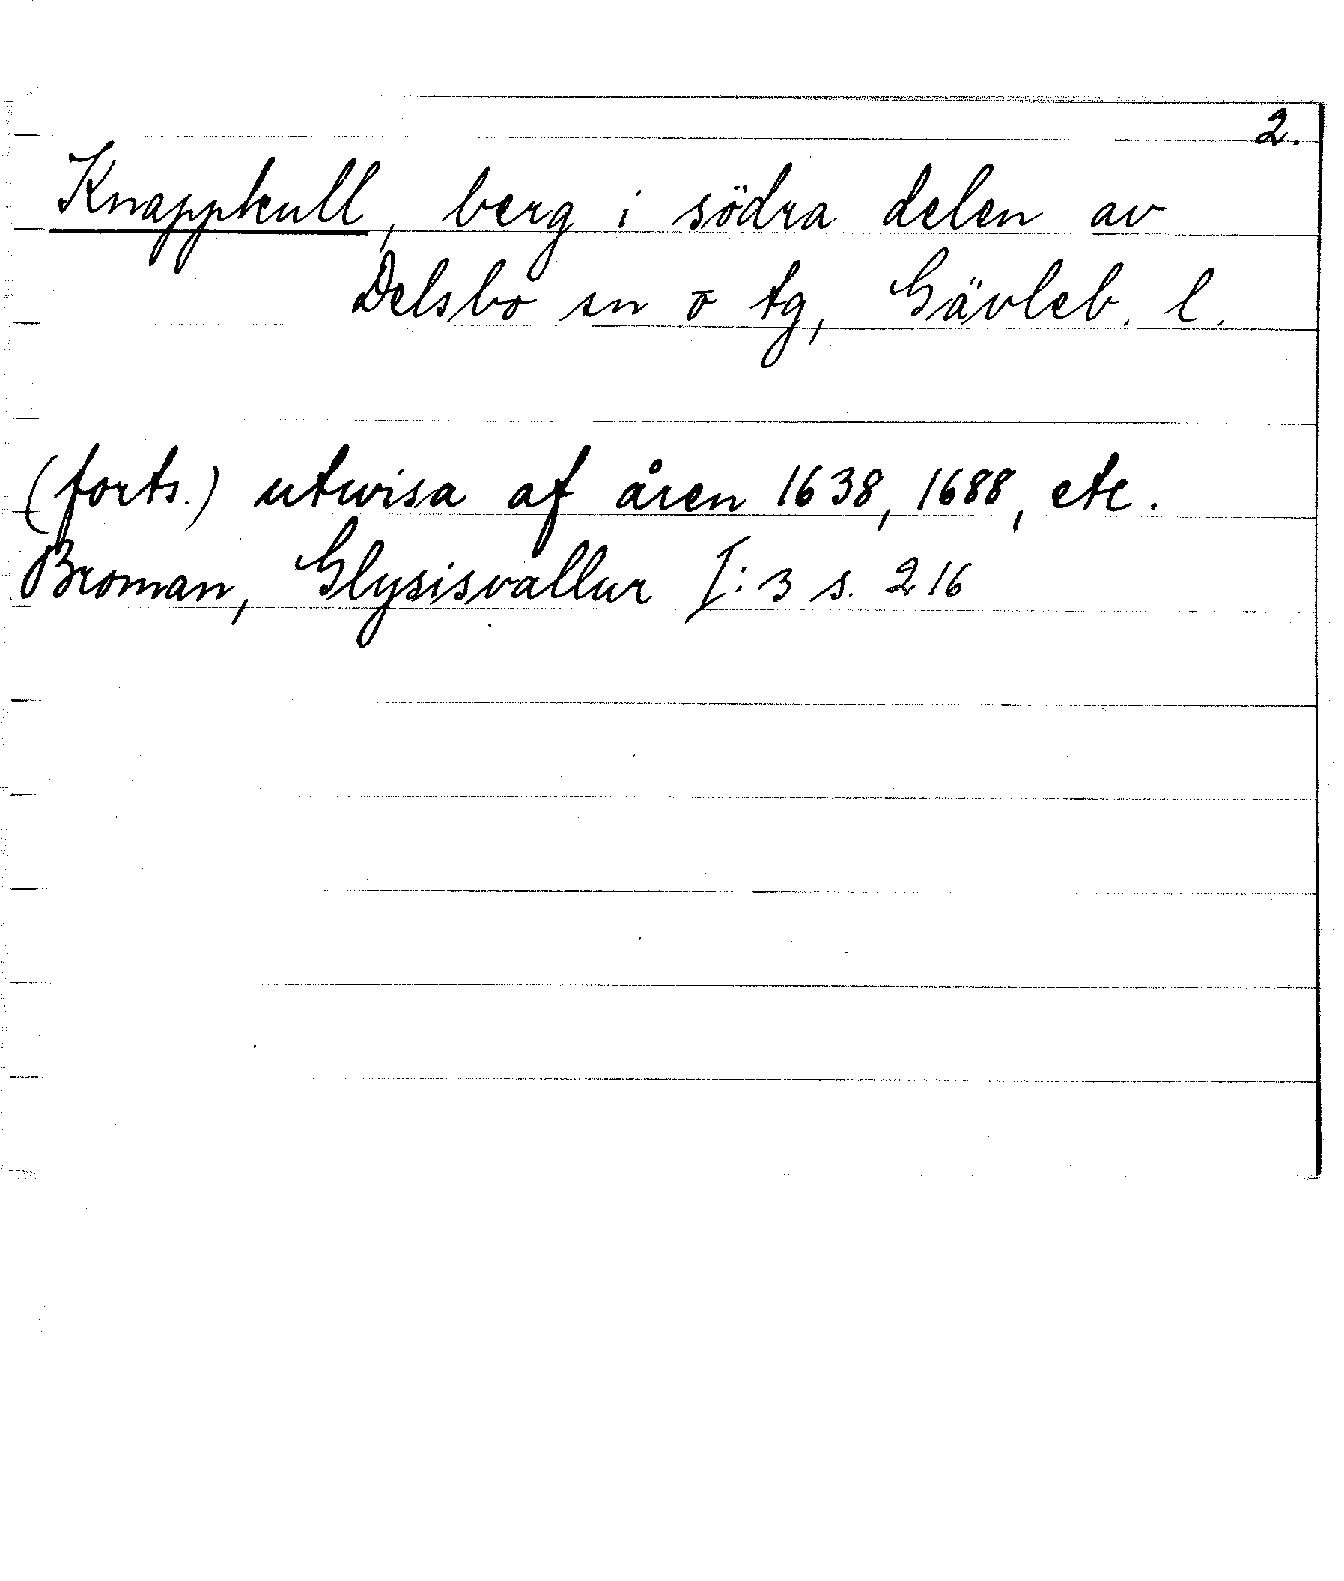 2.
Knappkull, berg i södra delen av
Delsbo sn o tg, Gävleb. l.
(forts.) utwisa af åren 1638, 1688, etc.
Broman, Glysisvallur I:3 s. 216